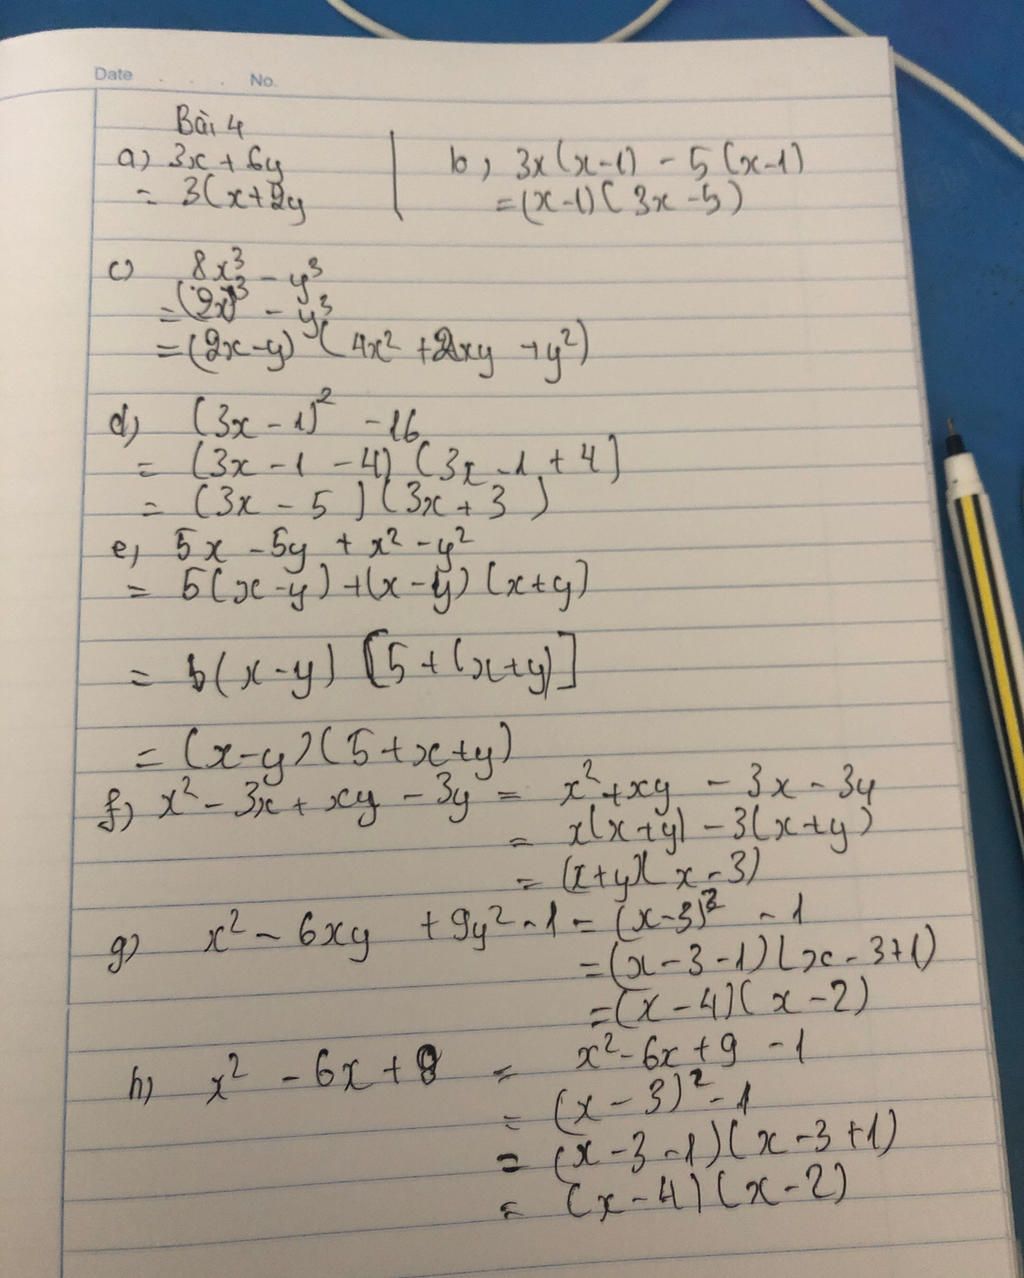 Date . . . No.
Bài 4
a) 3x + 6y
= 3(x+2y
b) 3x(x-1) - 5(x-1)
= (x-1)(3x-5)
c) 8x³ - y³
= (2x)³ - y³
= (2x-y)(4x² + 2xy + y²)
d) (3x - 1)² - 16
= (3x - 1 - 4)(3x - 1 + 4)
= (3x - 5)(3x + 3)
e) 5x - 5y + x² - y²
= 5(x-y) + (x-y)(x+y)
= 5(x-y) [5 + (x+y)]
= (x-y)(5+x+y)
f) x² - 3x + xy - 3y = x² + xy - 3x - 3y
= x(x+y) - 3(x+y)
= (x+y)(x-3)
g) x² - 6xy + 9y² - 1 = (x-3)² - 1
= (x-3-1)(x-3+1)
= (x-4)(x-2)
h) x² - 6x + 8 = x² - 6x + 9 - 1
= (x-3)² - 1
= (x-3-1)(x-3+1)
= (x-4)(x-2)